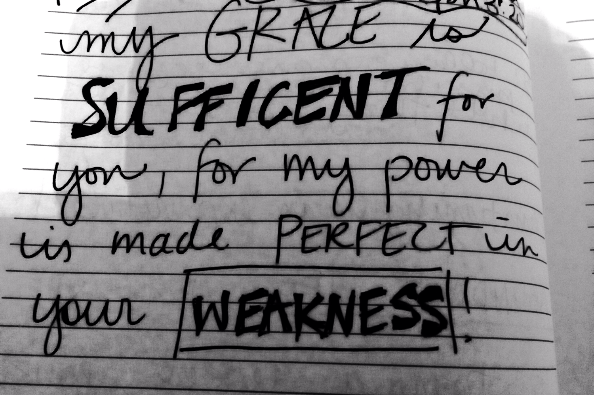 my GRACE is
SUFFICENT for
you, for my power
is made PERFECT in
your WEAKNESS!